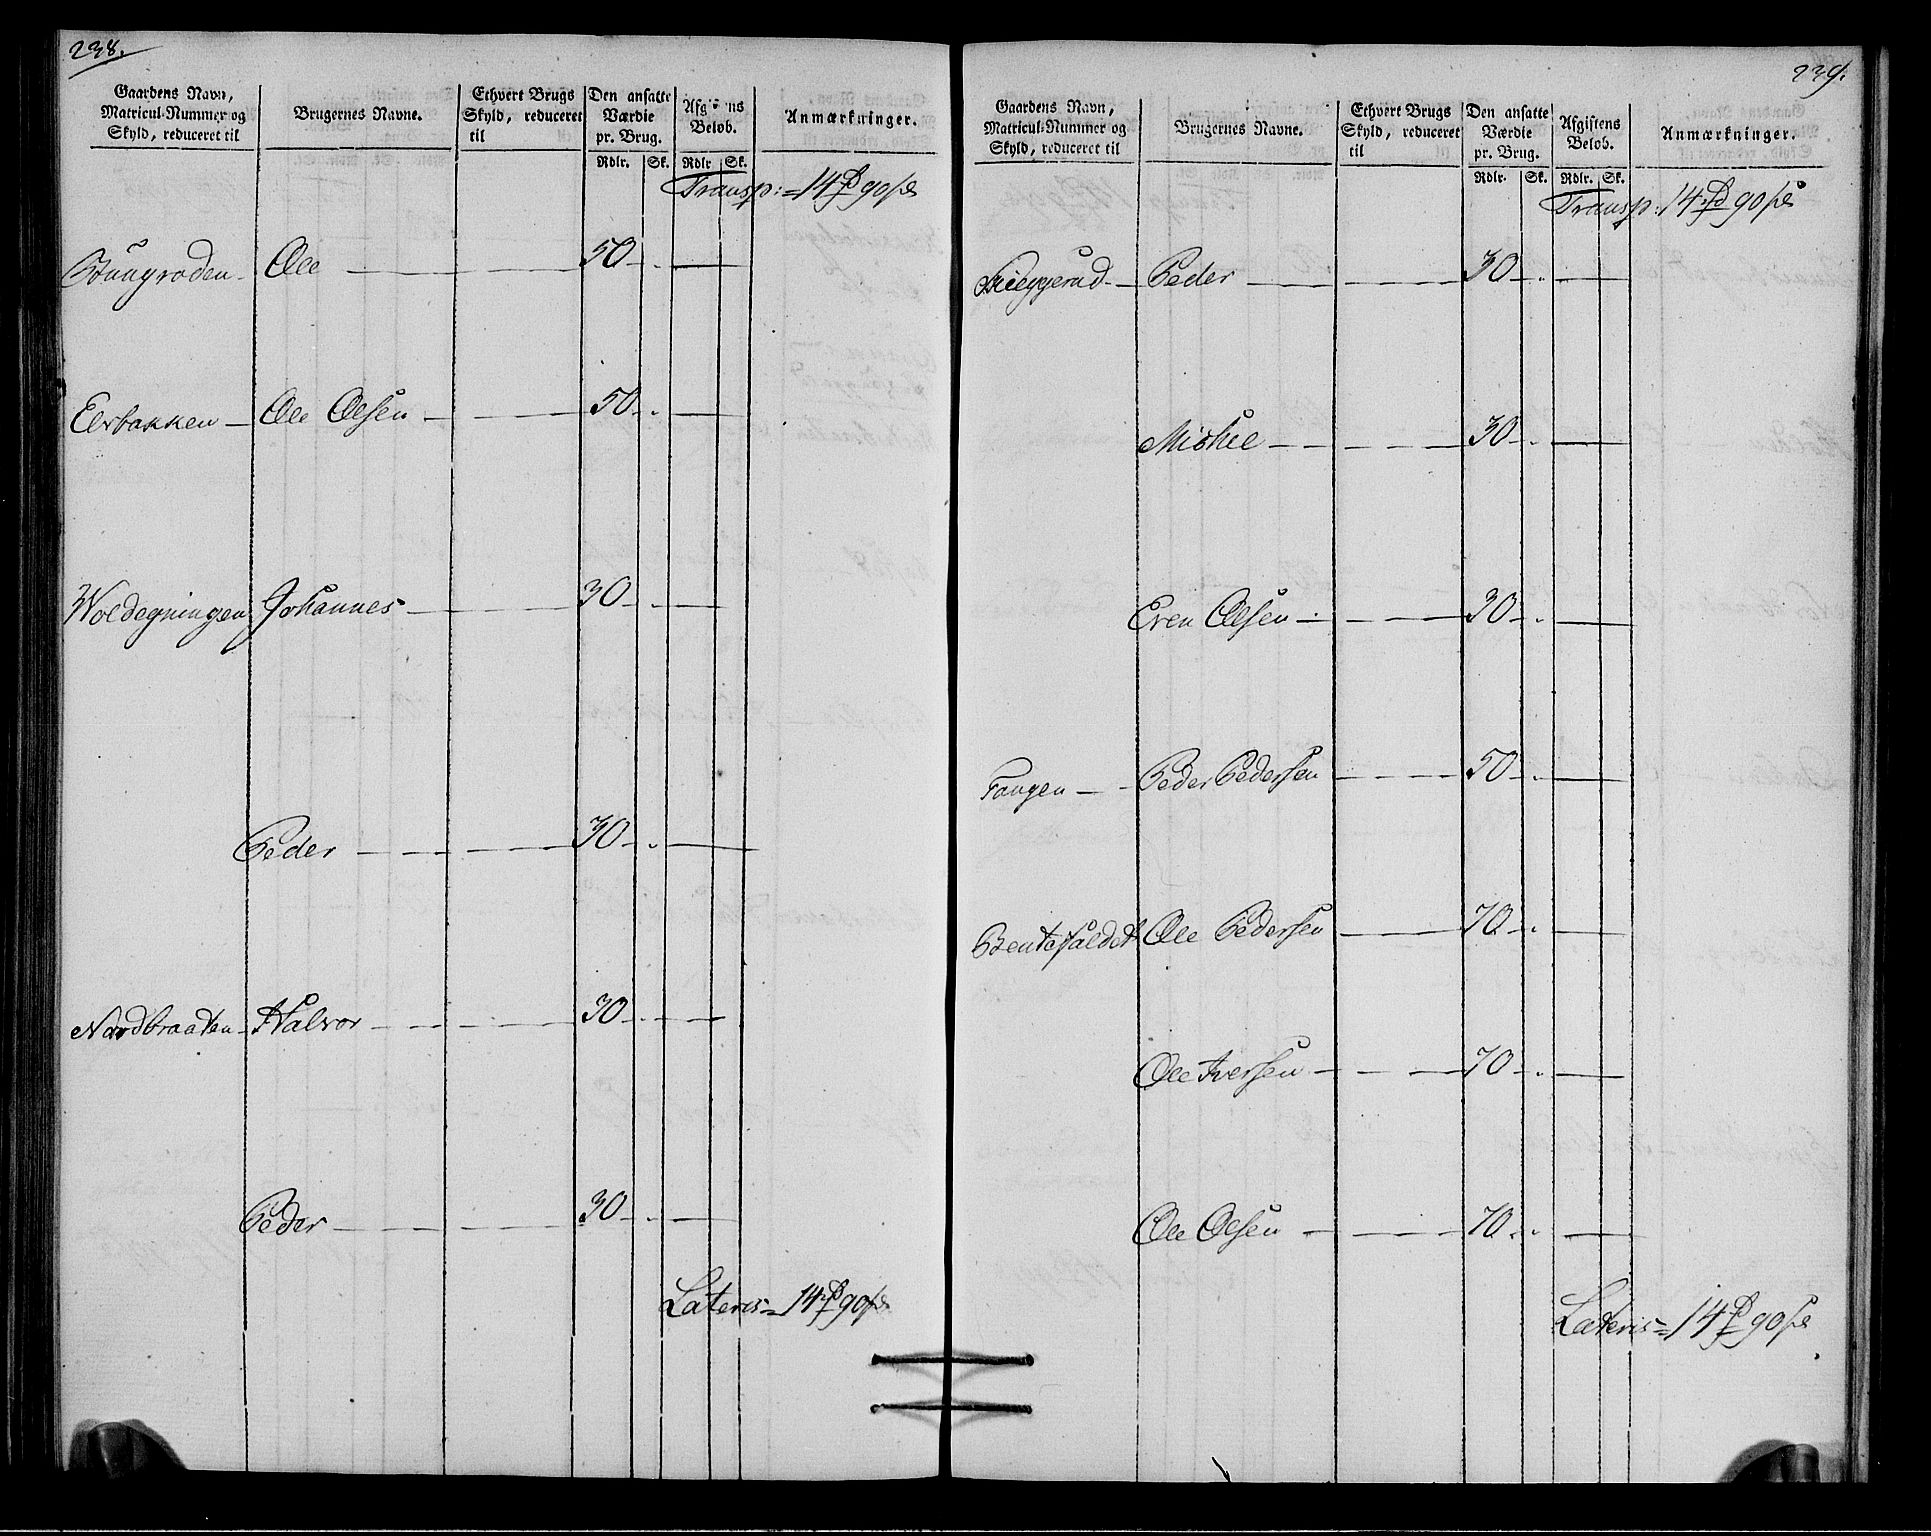 238.
Gaardens Navn,
Matricul-Nummer og
Skyld, reduceret til
Brugernes Navne.
Ethvert Brugs
Skyld, reduceret
til
Den ansatte
Værdie
pr. Brug.
Rdlr. Sk.
Afgiftens
Beløb.
Rdlr Sk.
Anmærkninger.
Transp: = 14 90
Ole — — — 50 - . —
Elvbakken — Ole Olsen — — — 50 - . —
Woldegningen Johannes — — — 30 - . —
Peder — — — 30 - . —
Nordbraaten — Halvor — — — 30 - . —
Peder — — — 30 - . —
Lateris = 14 90
239.
Gaardens Navn,
Matricul-Nummer og
Skyld, reduceret til
Brugernes Navne.
Ethvert Brugs
Skyld, reduceret
til
Den ansatte
Værdie
pr. Brug.
Rdlr. Sk.
Afgiftens
Beløb.
Rdlr. Sk.
Anmærkninger.
Transp: 14 90
Peder — — — 30 - . —
Mickel — — — 30 - . —
Even Olsen — — — 30 - . —
Tangen — Peder Pedersen — — 50 - . —
Bentefaldet Ole Pedersen — — 70 - . —
Ole Iversen — — — 70 - . —
Ole Olsen — — — 70 - . —
Lateris = 14 90